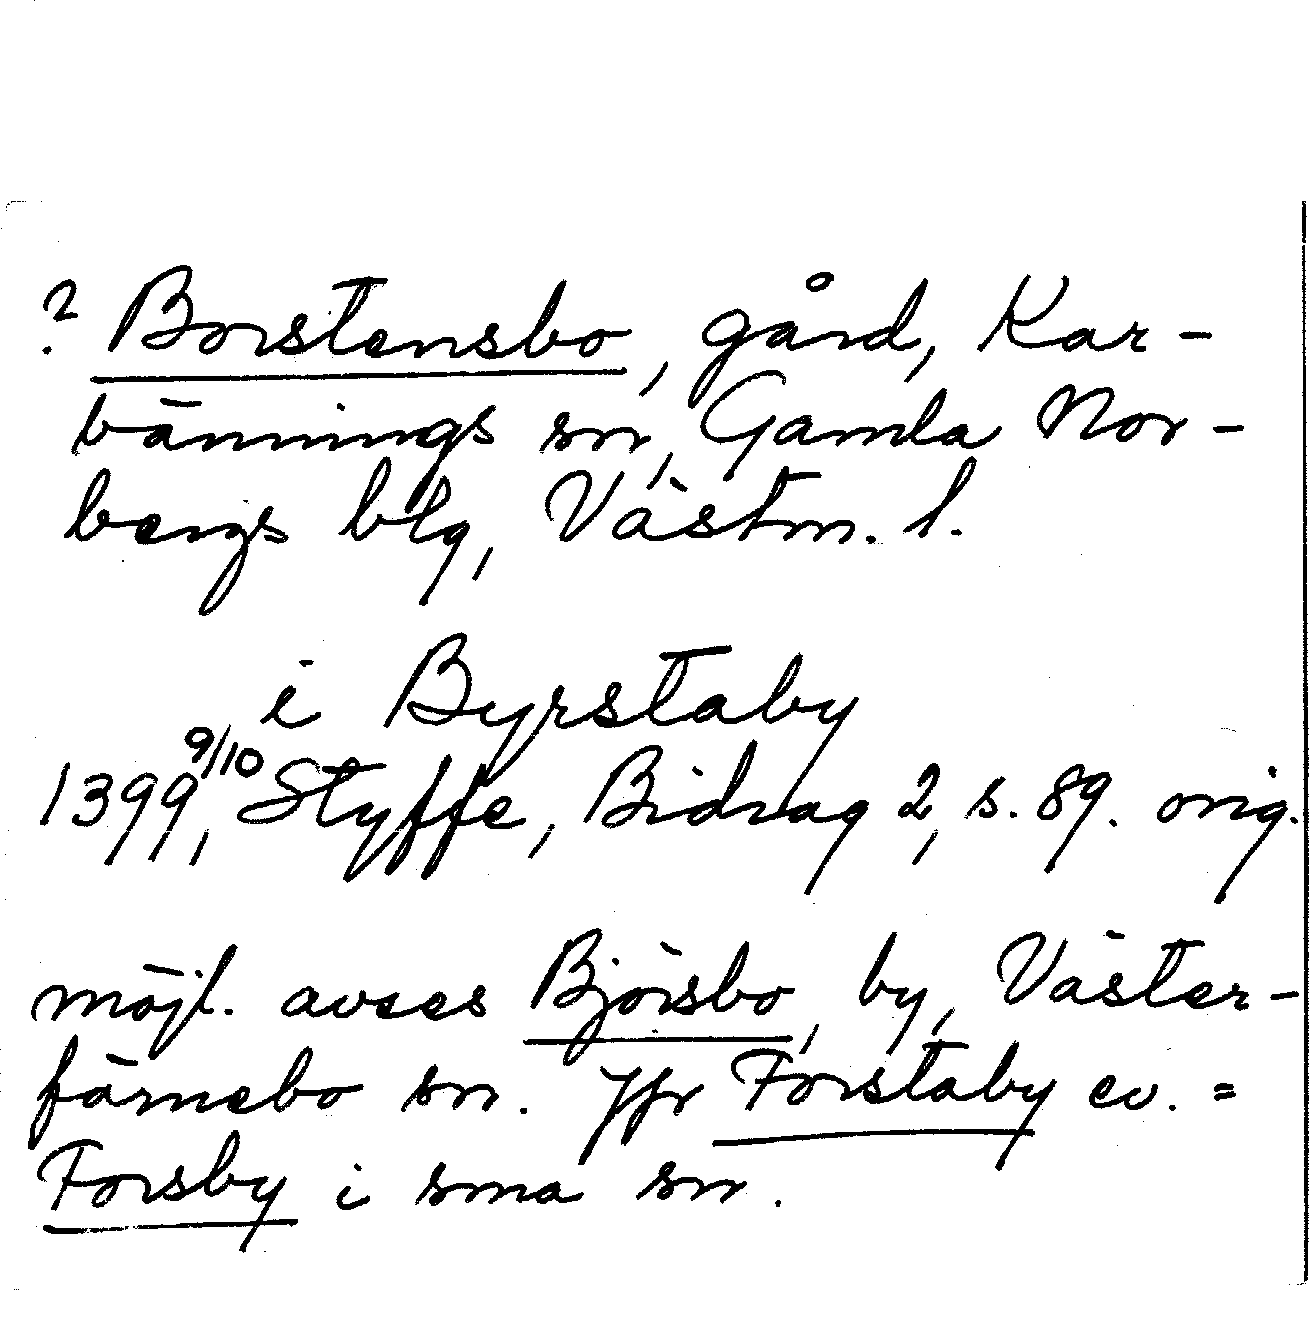 ? Borstensbo, gård, Kar-
bännings sn, Gamla Nor-
bergs blg, Västm. l.
i Byrstaby
1399 9/10, Styffe, Bidrag 2, s. 89. orig.
möjl. avses Björsbo, by, Väster-
färnebo sn. Jfr Forstaby ev. =
Forsby i sma sn.